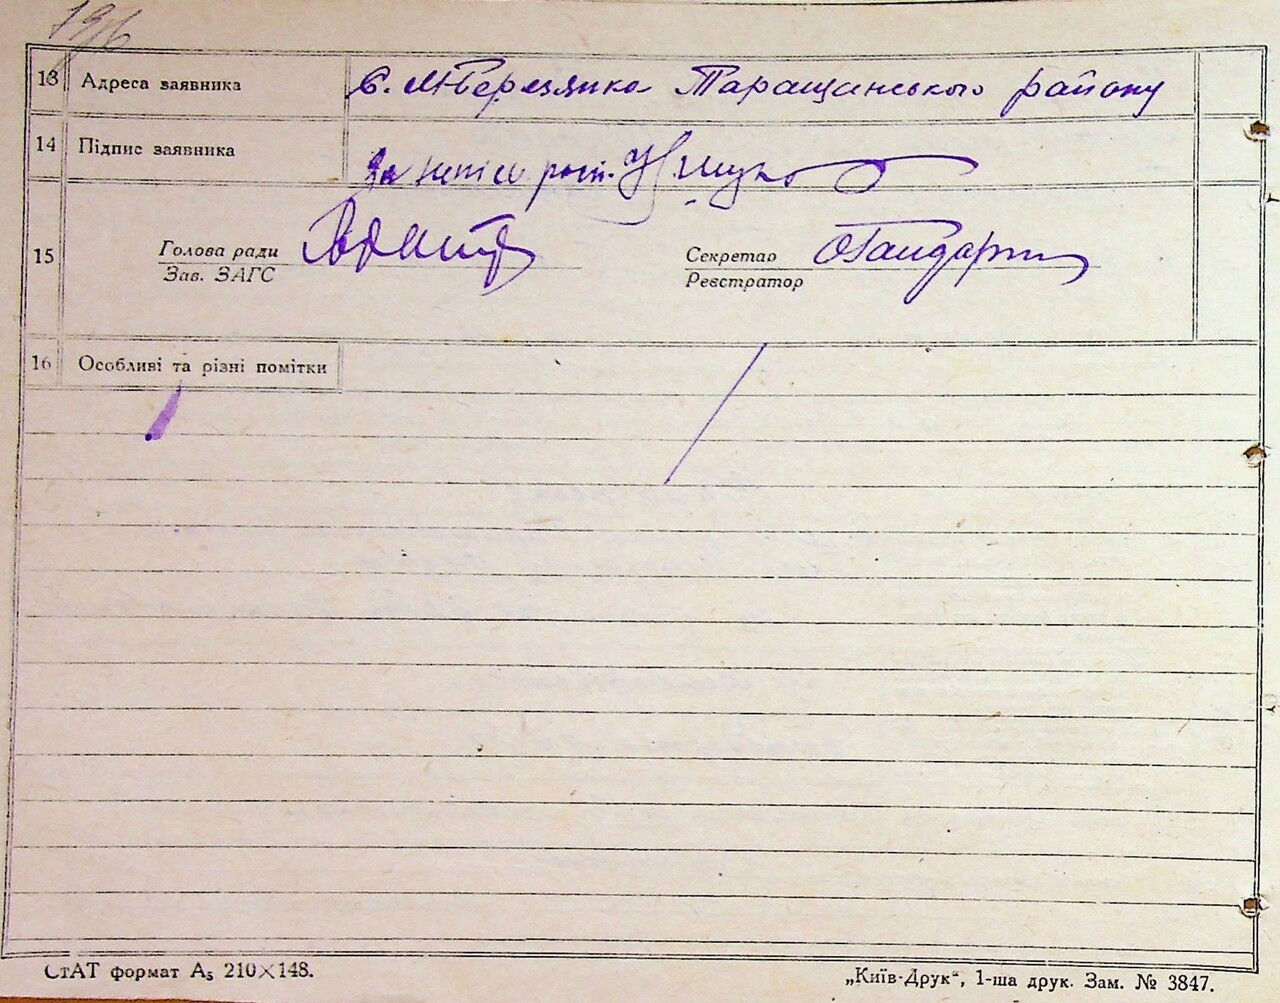 196
13 Адреса заявника с. М-Березянка Таращанського району
14 Підпис заявника За
15 Голова ради Секретар
Зав. ЗАГС Реєстратор
16 Особливі та різні помітки
СтАТ формат А₅ 210×148. „Київ-Друк“, 1-ша друк. Зам. № 3847.